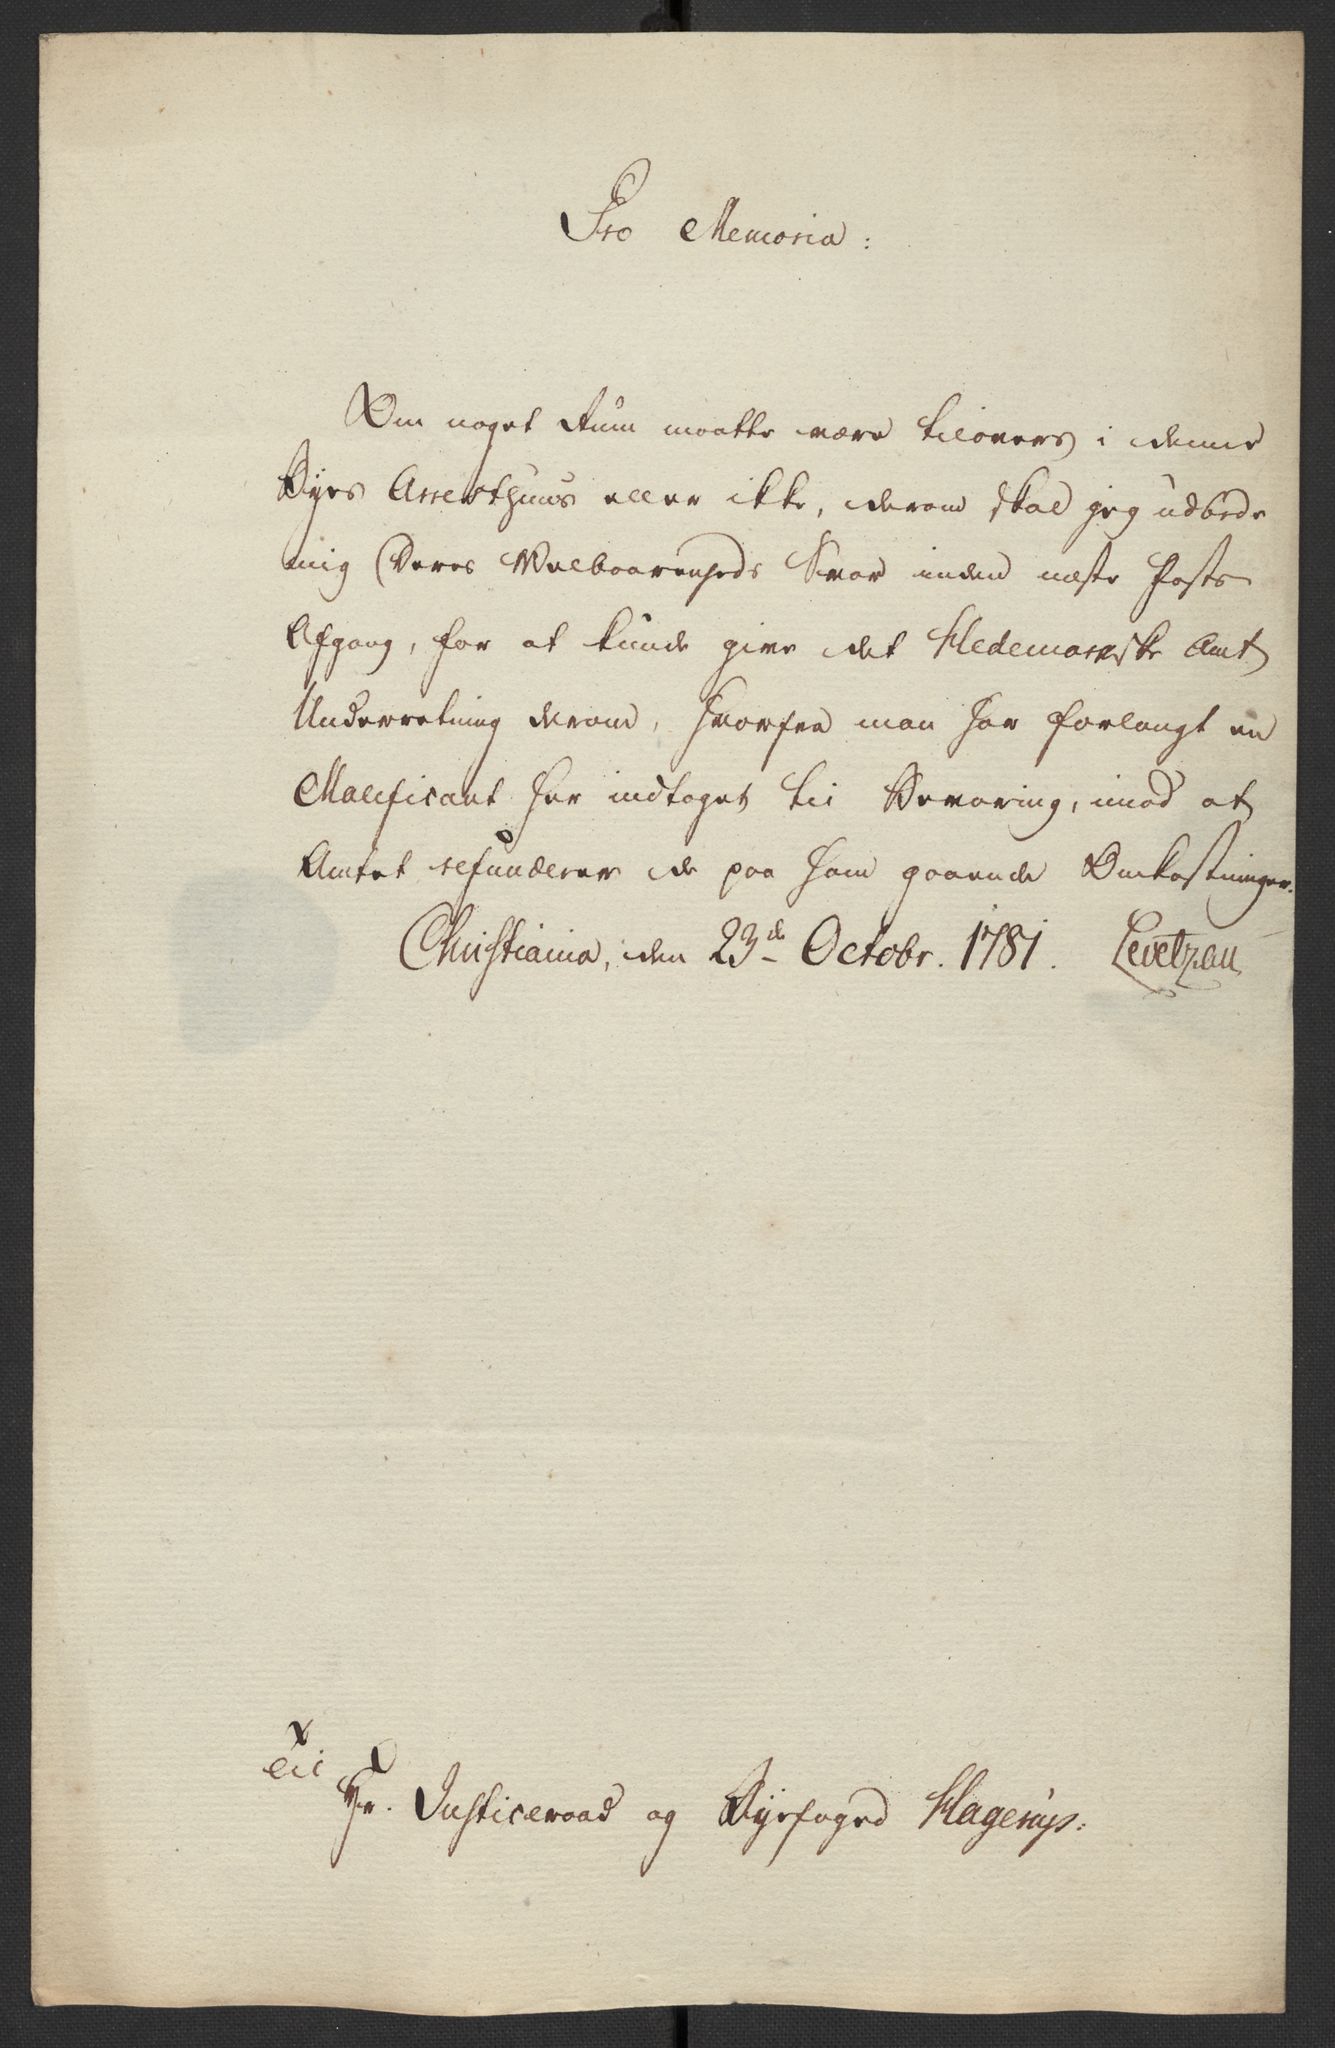 Pro Memoria:
Om noget Rum maatte være tilovers i denne
Byes Arresthuus eller ikke, derom skal jeg udbede
mig Deres Velbaarenheds Svar inden næste Posts
Afgang, for at kunde give det Hedemarkske Amt
Underretning derom, hvorfra man har forlangt en
Maleficant her indtaget til Bevaring, imod at
Amtet refunderer de paa ham gaaende Omkostninger.
Christiania, den 23de Octobr. 1781. Levetzau
Til
Hr. Justiceraad og Byefoged Hagerup.